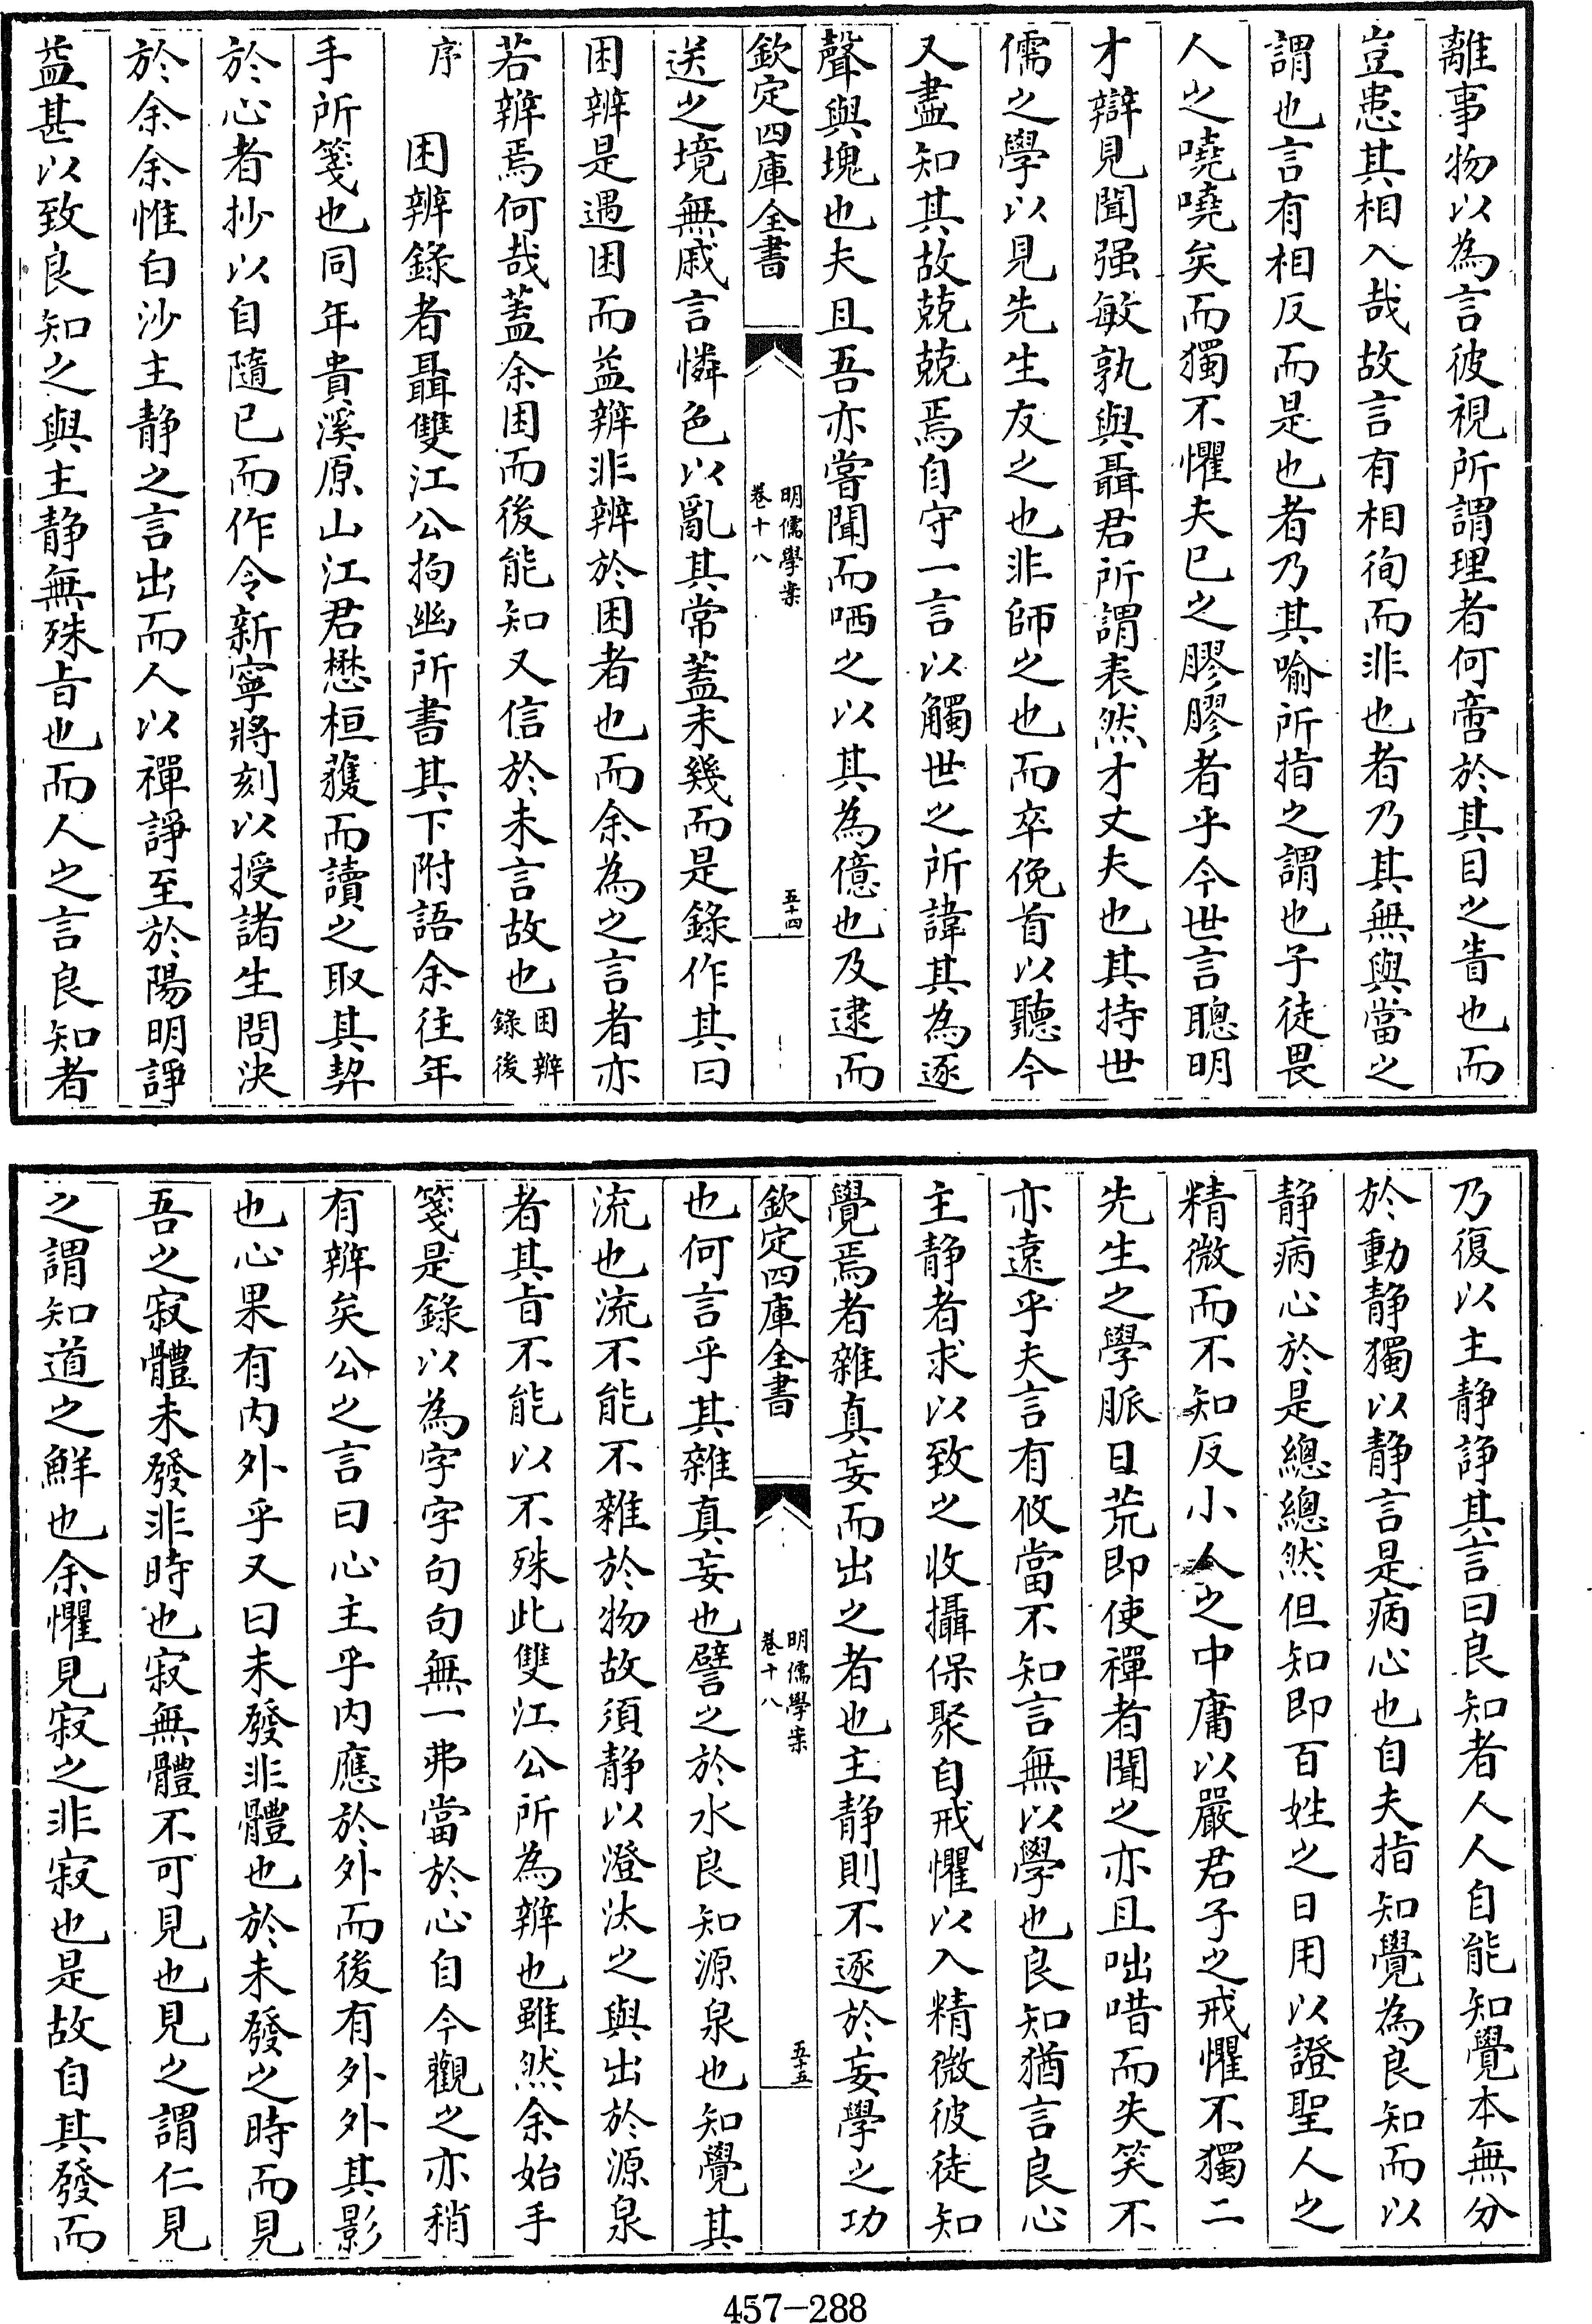 離事物以為言彼視所謂理者何啻於其目之眚也而
豈患其相入哉故言有相徇而非也者乃其無與當之
謂也言有相反而是也者乃其喻所指之謂也子徒畏
人之嘵嘵矣而獨不懼夫已之膠膠者乎今世言聰明
才辯見聞强敏孰與聶君所謂表然才丈夫也其持世
儒之學以見先生友之也非師之也而卒俛首以聽今
又盡知其故兢兢焉自守一言以觸世之所諱其為逐
聲與塊也夫且吾亦嘗聞而哂之以其為億也及逮而
欽定四庫全書
明儒學案
卷十八
五十四
送之境無戚言憐色以亂其常蓋未幾而是錄作其曰
困辨是遇困而益辨非辨於困者也而余為之言者亦
若辨焉何哉蓋余困而後能知又信於未言故也困辨
錄後
序
困辨錄者聶雙江公拘幽所書其下附語余往年
手所箋也同年貴溪原山江君懋桓獲而讀之取其契
於心者抄以自隨已而作令新寧將刻以授諸生問決
於余余惟白沙主静之言出而人以禪諍至於陽明諍
益甚以致良知之與主静無殊旨也而人之言良知者
乃復以主静諍其言曰良知者人人自能知覺本無分
於動静獨以静言是病心也自夫指知覺為良知而以
静病心於是總總然但知即百姓之日用以證聖人之
精微而不知反小人之中庸以嚴君子之戒懼不獨二
先生之學脈日荒即使禪者聞之亦且咄唶而失笑不
亦遠乎夫言有攸當不知言無以學也良知猶言良心
主静者求以致之收攝保聚自戒懼以入精微彼徒知
覺焉者雜真妄而出之者也主静則不逐於妄學之功
欽定四庫全書
明儒學案
卷十八
五十五
也何言乎其雜真妄也譬之於水良知源泉也知覺其
流也流不能不雜於物故須静以澄汰之與出於源泉
者其旨不能以不殊此雙江公所為辨也雖然余始手
箋是錄以為字字句句無一弗當於心自今觀之亦稍
有辨矣公之言曰心主乎内應於外而後有外外其影
也心果有内外乎又曰未發非體也於未發之時而見
吾之寂體未發非時也寂無體不可見也見之謂仁見
之謂知道之鮮也余懼見寂之非寂也是故自其發而
457-288